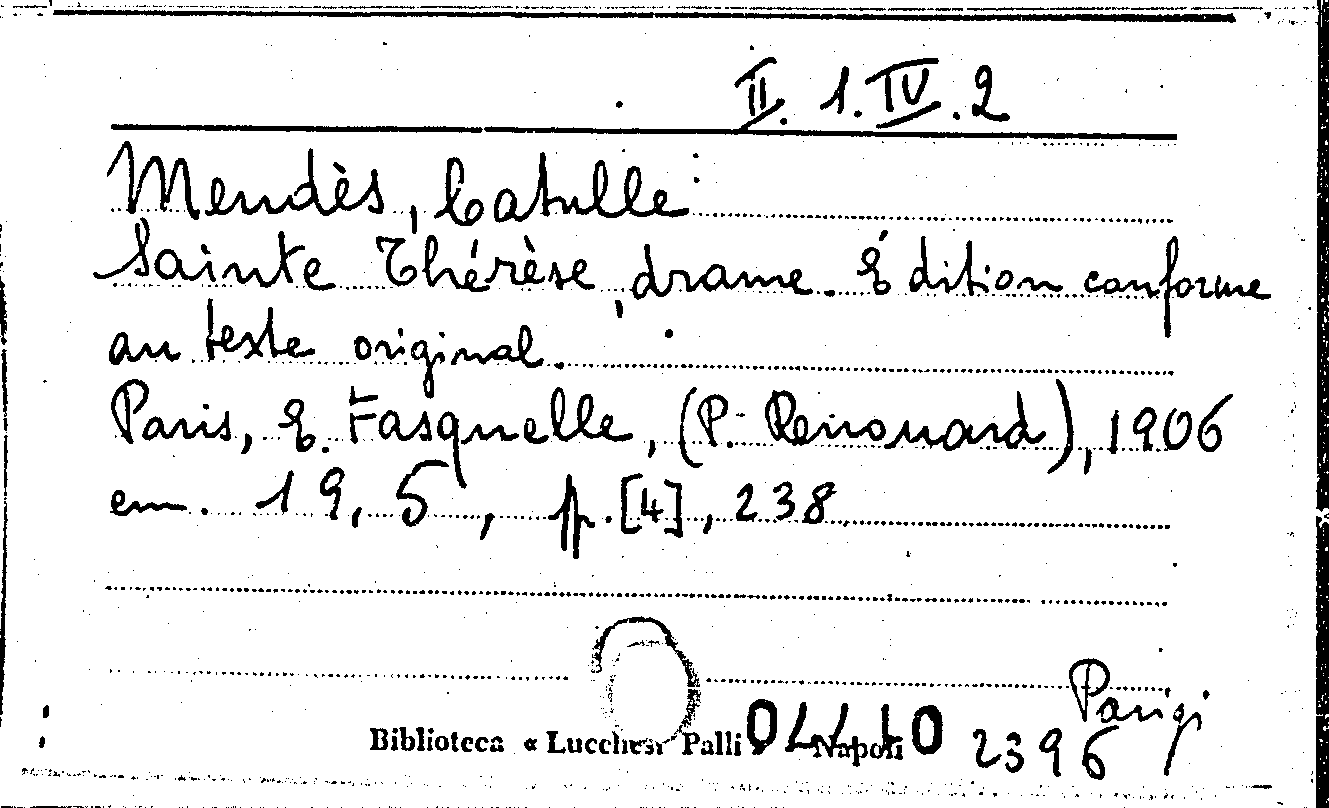 II. 1. IV. 2
Mendès, Catulle
Sainte Thérèse, drame. Édition conforme
au texte original.
Paris, E. Fasquelle, (P. Renouard), 1906
cm. 19,5, pp. [4], 238
Parigi
Biblioteca « Lucchesi Palli » Napoli
2396